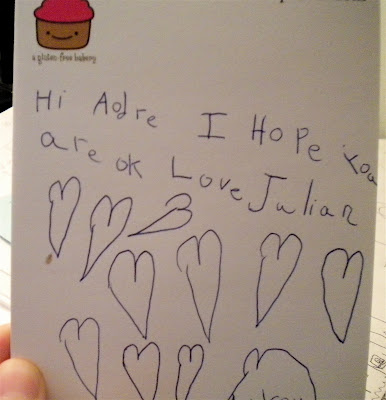 a gluten free bakery
Hi Adre I Hope You
are ok Love Julian